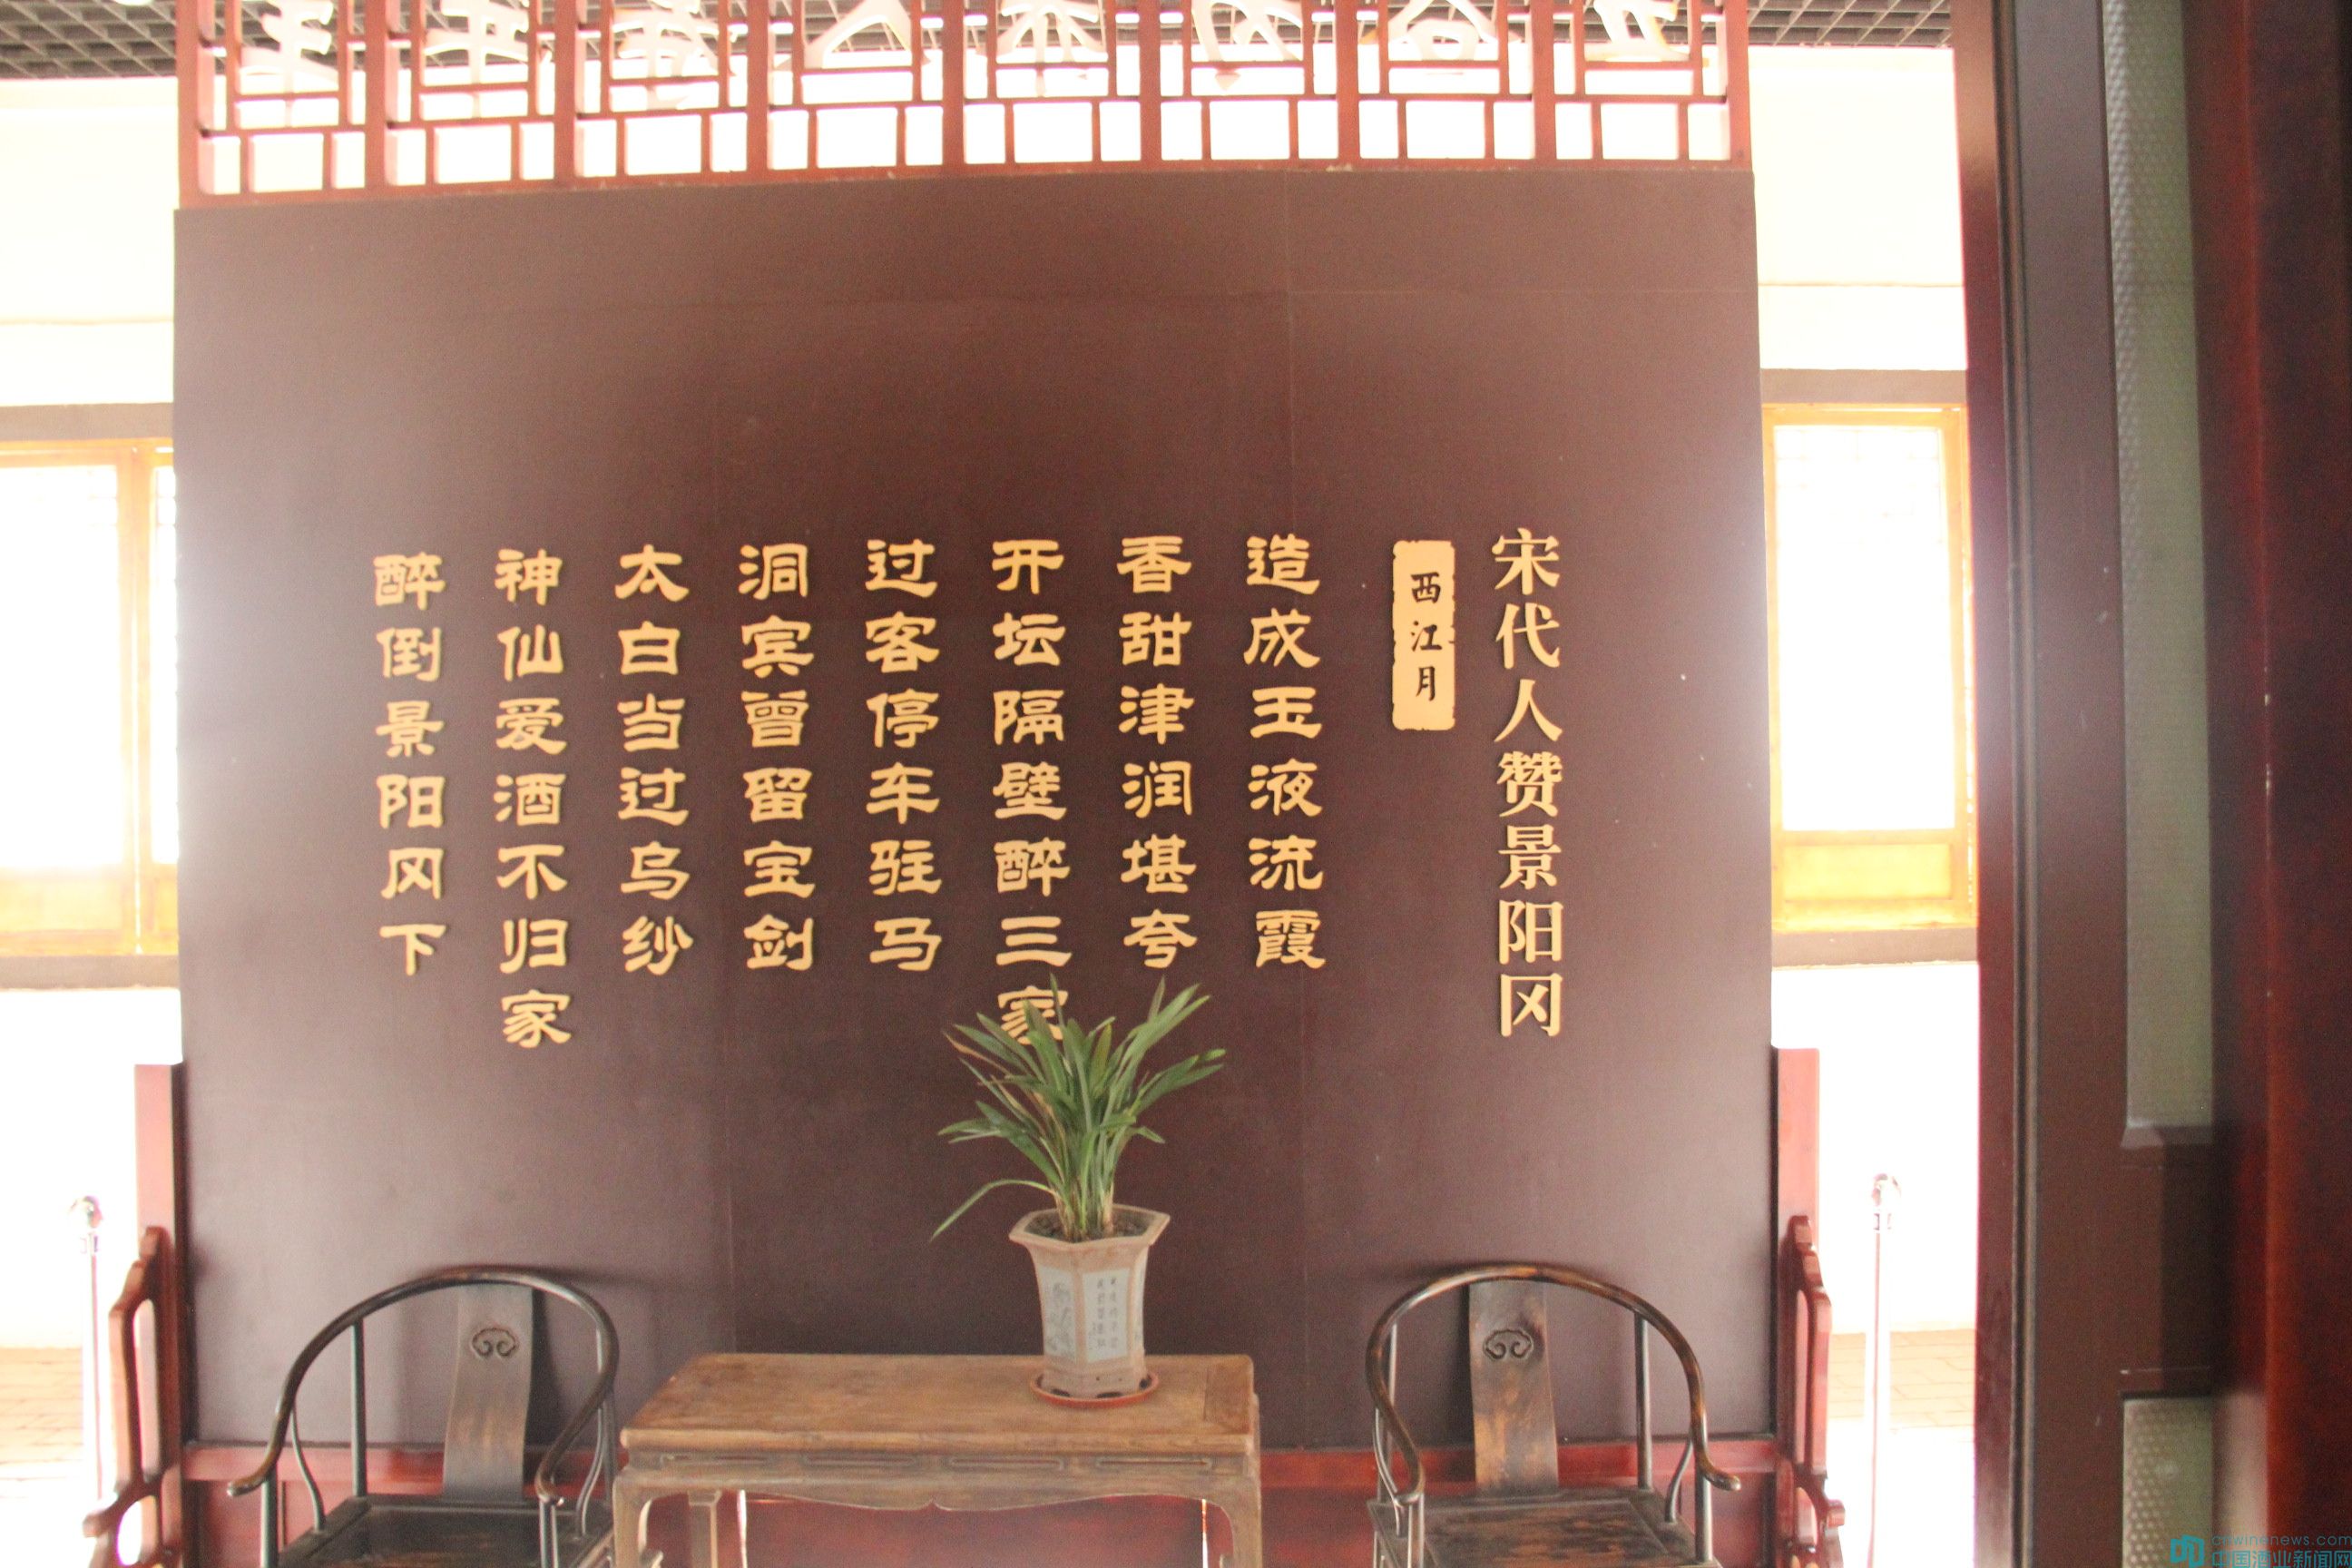 宋代人赞景阳冈
西江月
造成玉液流霞
香甜津润堪夸
开坛隔壁醉三家
过客停车驻马
洞宾曾留宝剑
太白当过乌纱
神仙爱酒不归家
醉倒景阳冈下
cnwinenews.com
中国酒业新闻网